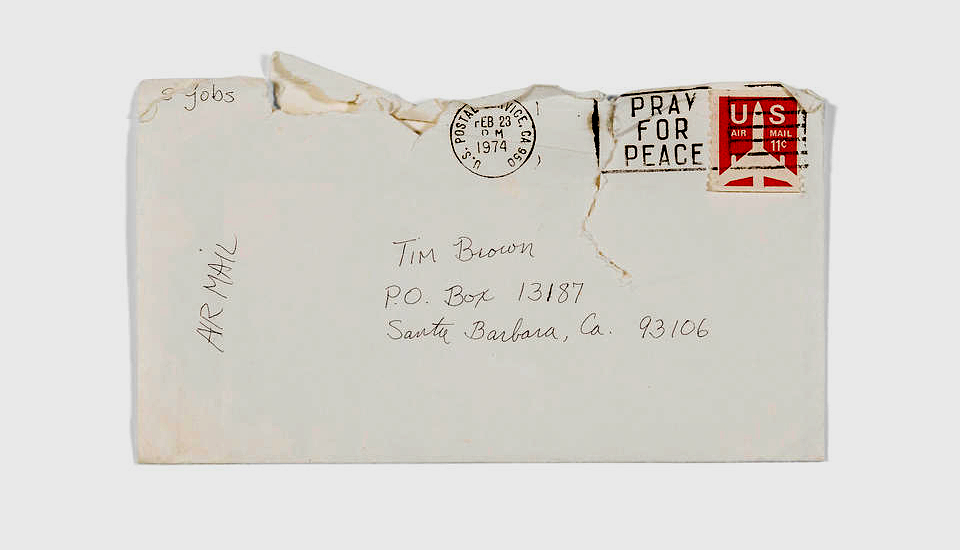 Jobs
U.S. POSTAL SERVICE, CA 950
FEB 23
PM
1974
PRAY
FOR
PEACE
US
AIR MAIL
11c
AIR MAIL
Tim Brown
P.O. Box 13187
Santa Barbara, Ca. 93106